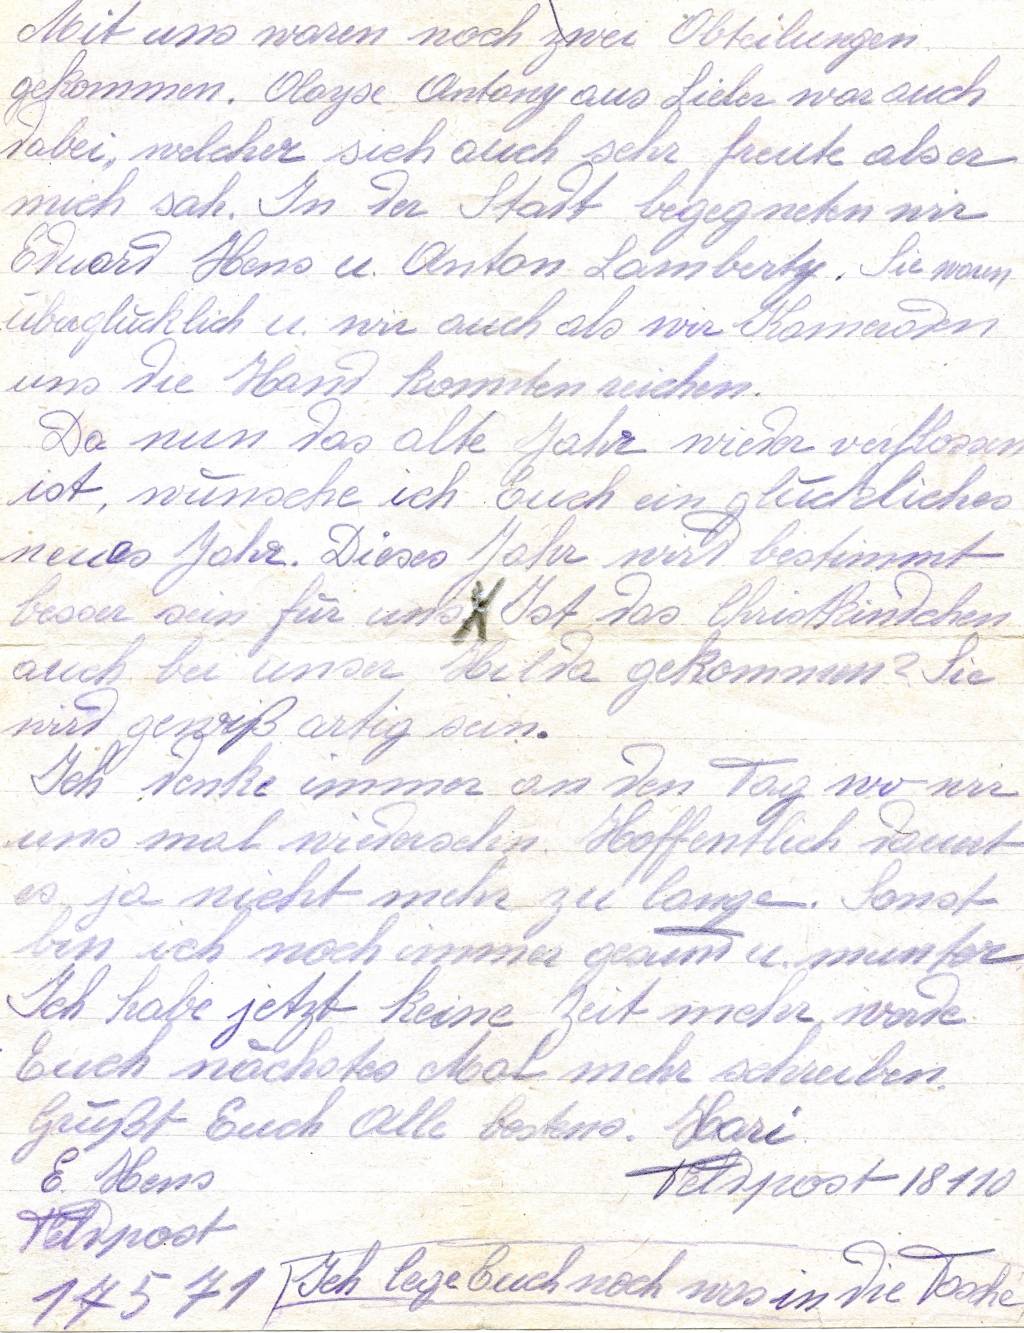 Mit uns waren noch zwei Obteilungen
gekommen. Oloyse Antony aus Lieler war auch
dabei, welcher sich auch sehr freute als er
mich sah. In der Stadt begegneten wir
Eduard Hens u. Anton Lamberty. Sie waren
überglücklich u. wir auch als wir Kameraden
uns die Hand konnten reichen.
Da nun das alte Jahr wieder verflossen
ist, wünsche ich Euch ein glückliches
neues Jahr. Dieses Jahr wird bestimmt
besser sein für uns. Ist das Christkindchen
auch bei unser Hilda gekommen? Sie
wird gewiß artig sein.
Ich denke immer an den Tag wo wir
uns mal wiedersehn. Hoffentlich dauert
es ja nicht mehr zu lange. Sonst
bin ich noch immer gesund u. munter
Ich habe jetzt keine Zeit mehr, werde
Euch nächstes Mal mehr schreiben.
Grüßt Euch Alle bestens. Hari
E. Hens Feldpost 18110
Feldpost
17571 Ich lege Euch noch was in die Tasche